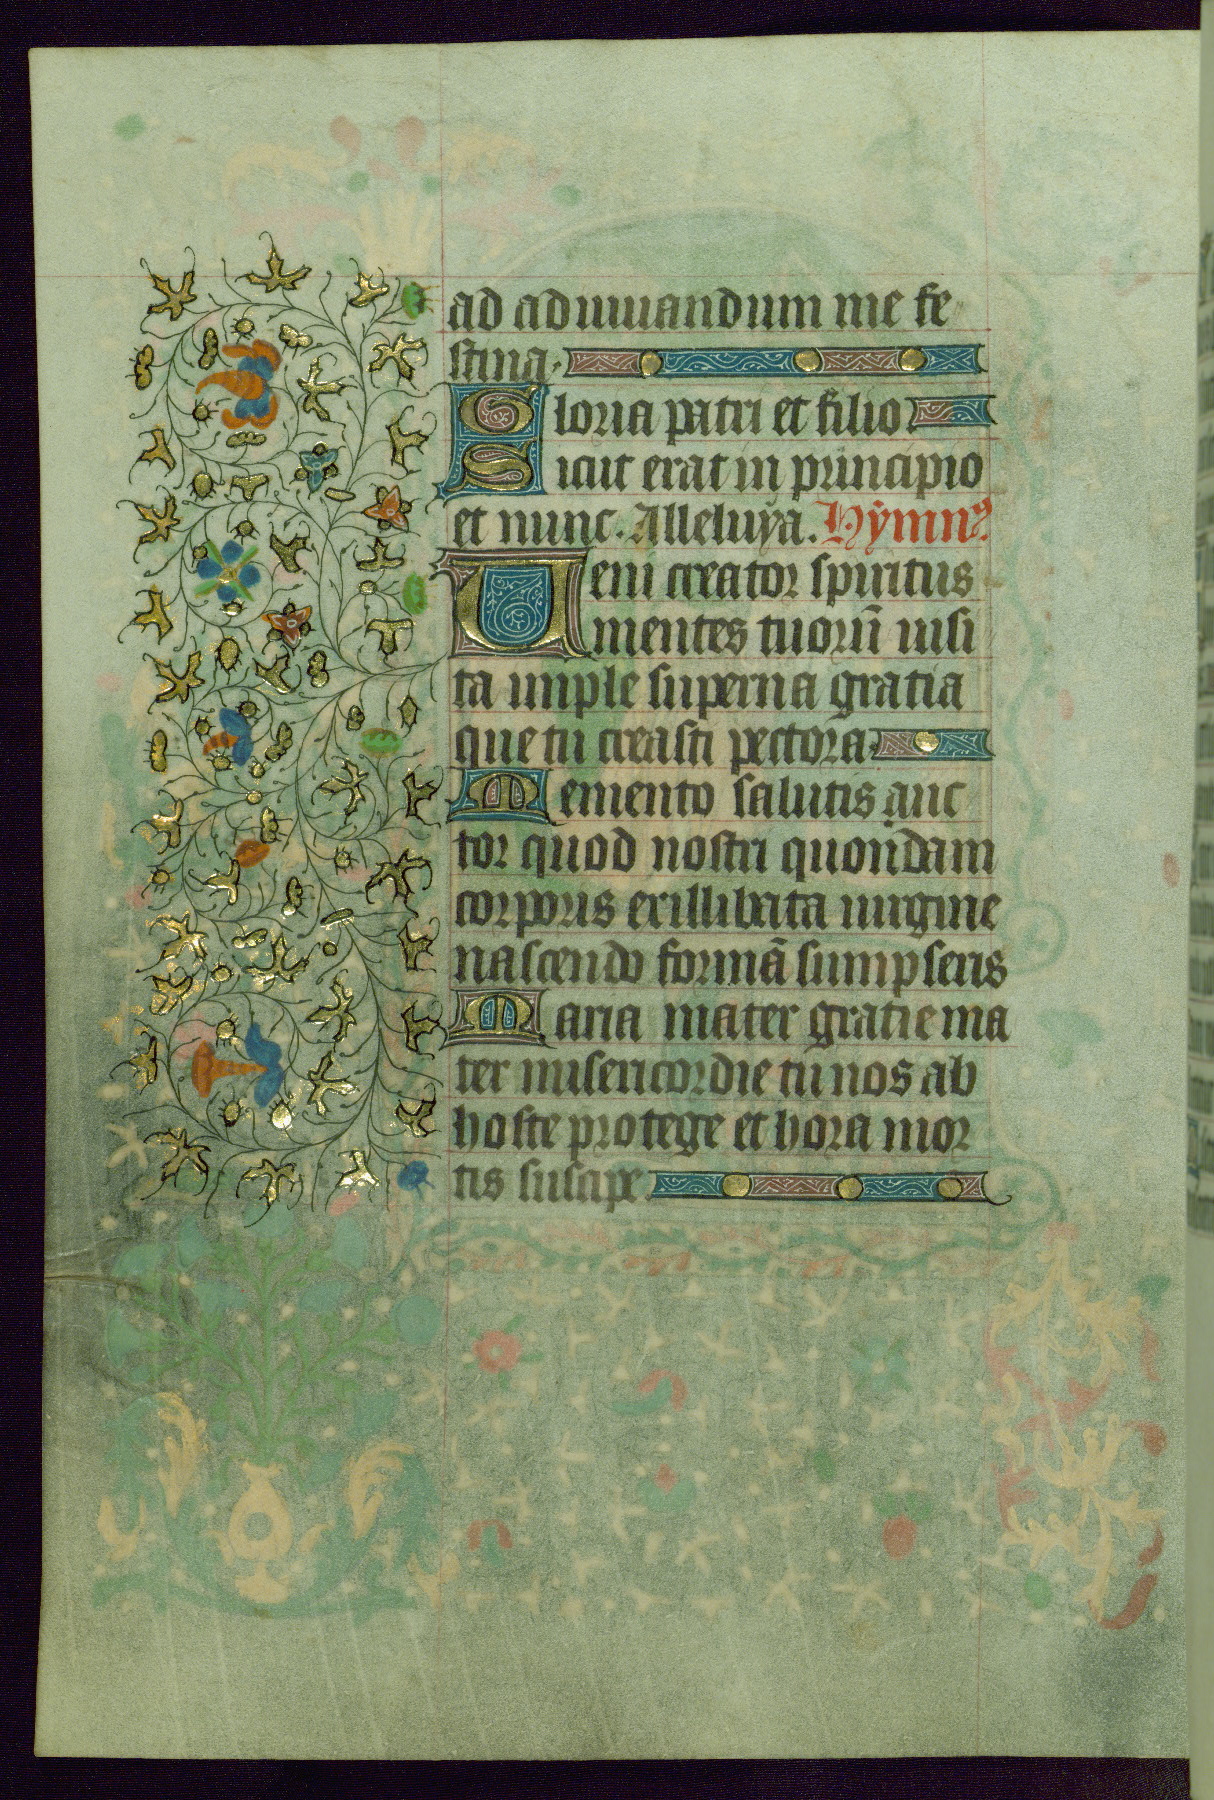 ad adiuuandum me fe
stina.
Gloria patri et filio
Sicut erat in principio
et nunc. Alleluya. Hỹmnꝰ
Ueni creator spiritus
mentes tuorũ uisi
ta imple superna gratia
que tu creasti pectora
Memento salutis auc
tor quod nostri quondam
corporis ex illibata uirgine
nascendo formã sumpseris
Maria mater gratie ma
ter misericordie tu nos ab
hoste protege et hora mor
tis suscipe